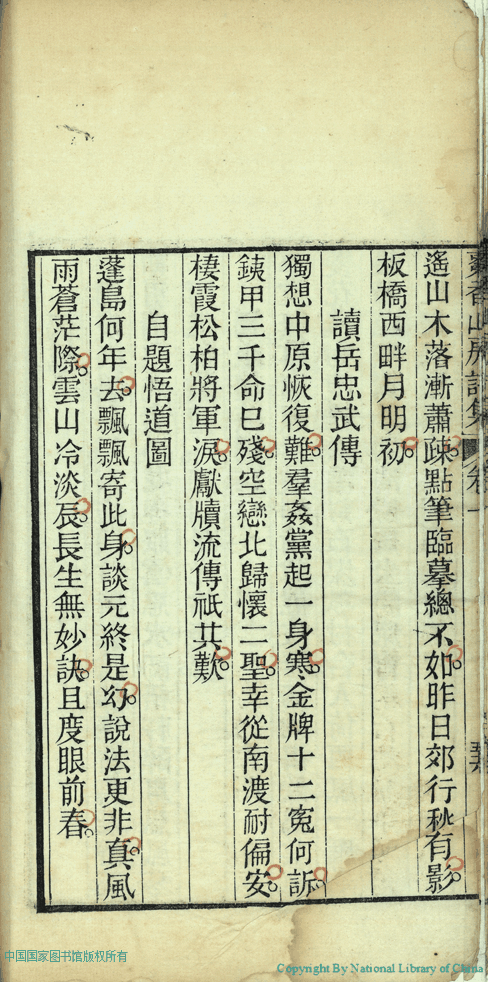 遙山木落漸蕭疎點筆臨摹總不如昨日郊行秋有影
板橋西畔月明初
讀岳忠武傳
獨想中原恢復難羣姦黨起一身寒金牌十二冤何訴
鐵甲三千命巳殘空戀北歸懷二聖幸從南渡耐偏安
棲霞松柏將軍淚獻牘流傳祇共歎
自題悟道圖
蓬島何年去飄飄寄此身談元終是幻說法更非真風
雨蒼茫際雲山冷淡辰長生無妙訣且度眼前春
中国国家图书馆版权所有
Copyright By National Library of China